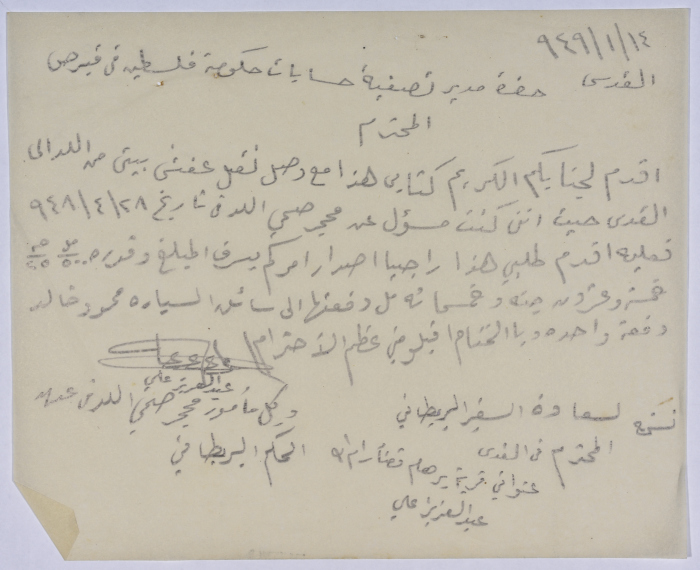 ٩٤٩/١/١٤
القدس
حضرة مدير تصفية حسابات حكومة فلسطين في قبرص
المحترم
اقدم لجنابكم الكريم كتابي هذا مع وصل نقل عفش بيتي من اللد الى
القدس حيث انني كنت مسؤل عن محجر صحي اللد في تاريخ ٩٤٨/٤/٢٨
فعليه اقدم طلبي هذا راجيا اصدار امركم بصرف المبلغ وقدره
خمسة وعشرون جنيه وخمسمائه مل دفعتها الى سائق السياره محمود خالد
دفعة واحده وبالختام اقبلو مني عظم الأحترام
عبد العزيز علي
وكيل مأمور محجر صحي اللد في عهد
الحكم البريطاني
نسخه لسعادة السفير البريطاني
المحترم في القدس
عنواني قرية برهام قضأ رام الله
عبد العزيز علي